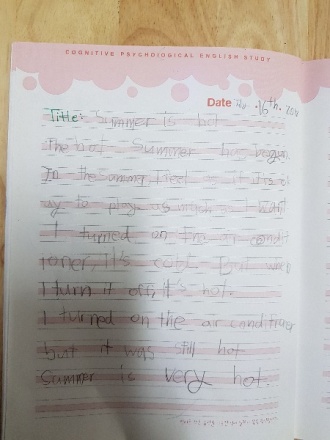 COGNITIVE PSYCHOLOGICAL ENGLISH STUDY
Date 16th.
Title: Summer is hot
The hot summer has begun
In the summer I feel as if
to play as much as I want
I turned on the air condit
ioner, It's cold. But when
I turn it off, it's hot.
I turned on the air conditioner
but it was still hot
Summer is very hot.